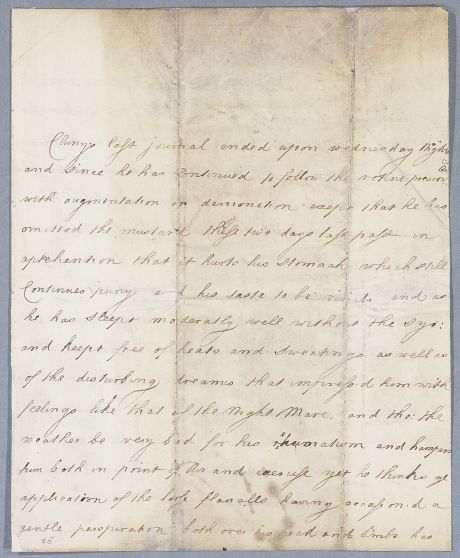 Clunys last journal ended upon wednesday night
and since he has continued to follow the rotine
with augmentation or demonition except that he has
omitted the mustard these two days last past in
aprehention that it hurts his stomach which still
Continues puny and his taste to be and as
he has sleept moderatly well without the Syr:
and keept free of heats and sweatings as well as
of the disturbing dreams that impressed him with
feelings like that of the Night Mare. and tho: the
weather be very bad for his rhumatism and hampers
him both in point of Air and yet he thinks ye
application of the flanells having occasiond a
gentle perspiration both over his head and limbs has
85